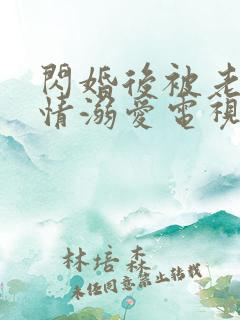 閃婚後被老
情溺愛電視
林培森
未任同意禁止转载